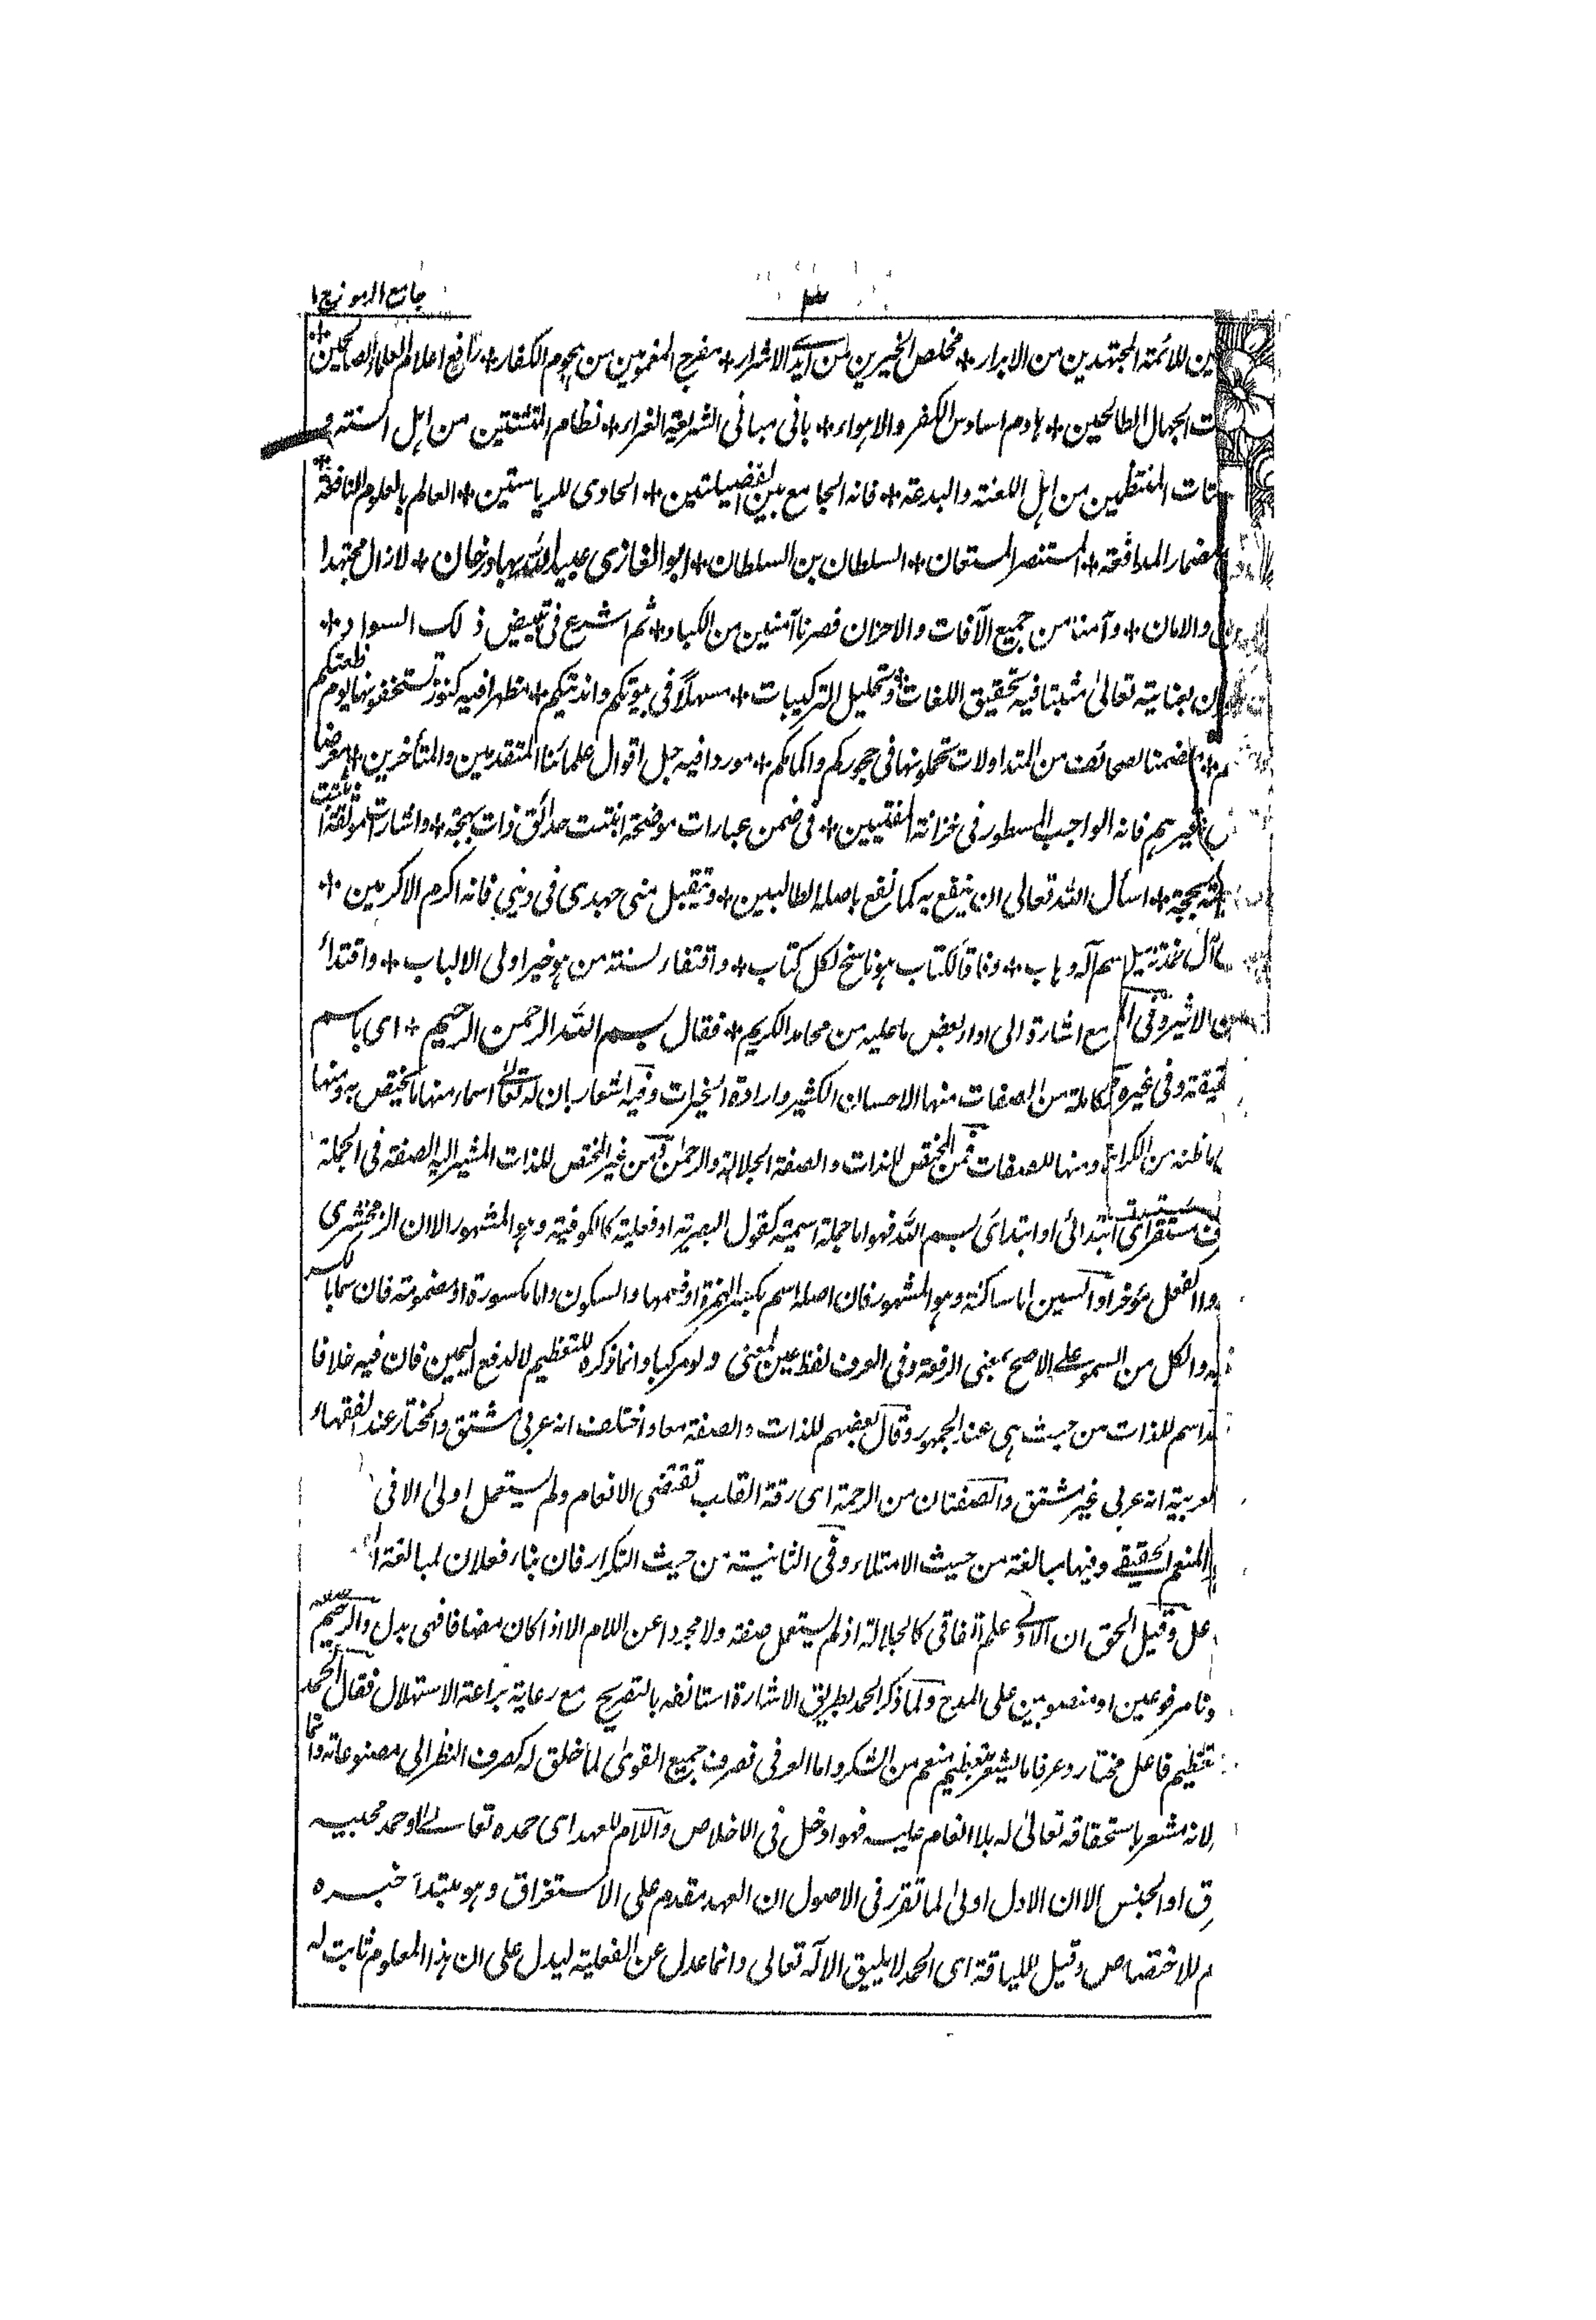 ٣
جامع الرموز ج ١
ين للائمة المجتهدين من الابرار + مخلص الخيرين من ايدي الاشرار + مفرج المغمومين من هجوم الكفار + رافع اعلام العلماء الصالحين +
ت الجهال الطالحين + هادم اساوس الكفر والاهواء + بانى مبانى الشريعة الغراء + نظام المتشتتين من اهل السنة و
تات المنتظمين من اهل اللعنة والبدعة + فانه الجامع بين الفضيلتين + الحاوى للرياستين + العالم بالعلوم النافعة +
مضمار المدافعة + المستنصر المستعان + السلطان بن السلطان + ابو الغازى عبيد الله بهادر خان + لازال مجتهدا
والامان + وآمننا من جميع الآفات والاحزان فصرنا آمنين من الكباد + ثم اشرع فى تبييض ذلك السواد +
ان بعنايته تعالى مثبتا فيه تحقيق اللغات + وتحليل التركيبات + مسهلا فى بيوتكم وانديتكم + مظهرا فيه كنوز تستخفونها يوم ظعنكم
م + مضمنا لصحائف من المتداولات تحملونها فى حجوركم واكمامكم + موردا فيه جل اقوال علمائنا المتقدمين والمتأخرين + معرضا
غيرهم فانه الواجب المسطور فى خزانة المفتيين + فى ضمن عبارات موضحة انبتت حدائق ذات بهجة + واشارات مونقة
بحجة + اسأل الله تعالى ان ينفع به كما نفع باصله الطالبين + ويتقبل منى جهدى فى دينى فانه اكرم الاكرمين +
اسم آله وهاب + وفاقا لكتاب هو ناسخ لكل كتاب + واقتفاء لسنة من هو خير اولى الالباب + واقتداء
ن الاثيرة فى مع اشارة الى اداء بعض ما عليه من محامد الكريم + فقال بسم الله الرحمن الرحيم + اى باسم
قيقة وفى غيره كاملة من الصفات منها الاحسان الكثير وارادة الخيرات وفيه اشعار بان له تعالى اسماء منها ما يختص به ومنها
ما ظنه من الكرا ومنها للصفات فمن المختص للذات والصفة الجلالة والرحمن ومن غير المختص للذات المشير اليه الصفة فى الجملة
ف مستقر اى ابتدائى او ابتداءى بسم الله فهو اما جملة اسمية كقول البصرية او فعلية كالكوفية وهو المشهور الا ان الزمخشرى
الفعل مؤخرا والسين اما ساكنة وهو المشهور فان اصله اسم بكسر الهمزة او ضمها والسكون واما مكسورة او مضمومة فان سما بالكسر
يه والكل من السمو على الاصح بمعنى الرفعة وفى العرف لفظ عين لمعنى ولو مركبا وانما ذكره للتعظيم لا لدفع اليمين فان فيه خلافا
اسم للذات من حيث هى عند الجمهور وقال بعضهم للذات والصفة معا واختلف انه عربى مشتق والمختار عند الفقهاء
لعربية انه عربى غير مشتق والصفتان من الرحمة اى رقة القلب تقتضى الانعام ولم يستعمل اولى الا فى
المنعم الحقيقى وفيها مبالغة من حيث الامتلاء وفى الثانية من حيث التكرار فان بناء فعلان لمبالغة ا
عل وقيل الحق ان الاولى علم اتفاقى كالجلالة اذ لم يستعمل صفة ولا مجردا عن اللام الا اذا كان مضافا فهى بدل والرحيم
ونا مرفوعين او منصوبين على المدح ولما ذكر الحمد بطريق الاشارة استأنفه بالتصريح مع رعاية براعة الاستهلال فقال الحمد
تعظيم فاعل مختار وعرفا ما ليشعر بتعظيم منعم من الشكر واما العرفى فصرف جميع القوى لما خلق له كصرف النظر الى مصنوعاته وانما
لانه مشعر باستحقاقه تعالى له بلا انعام عليه فهو ادخل فى الاخلاص واللام للعهد اى حمده تعالى او حمد محبيه
ق او الجنس الا ان الاول اولى لما تقرر فى الاصول ان العهد مقدم على الاستغراق وهو مبتدأ خبره
م للاختصاص وقيل للياقة اى الحمد لا يليق الا له تعالى وانما عدل عن الفعلية ليدل على ان هذا المعلوم ثابت له